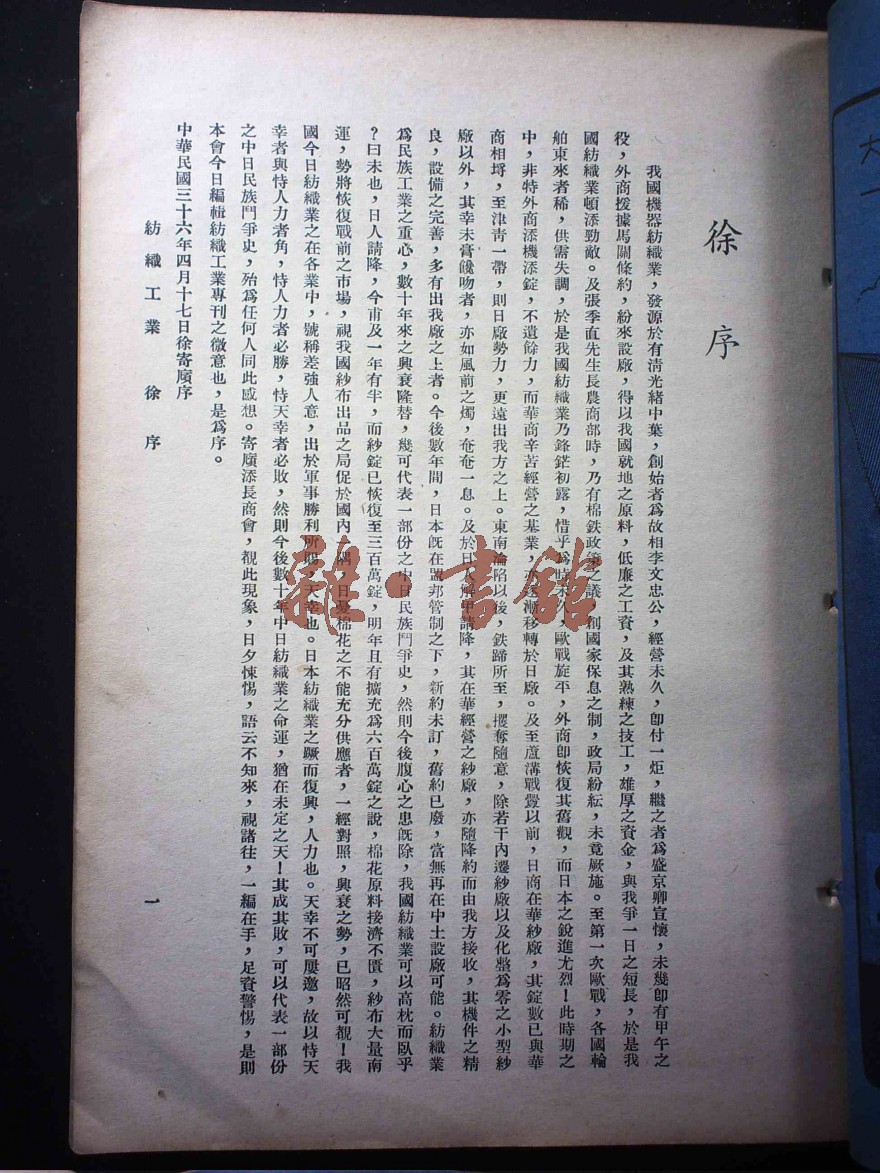 徐序
我國機器紡織業，發源於有淸光緖中葉，創始者爲故相李文忠公，經營未久，卽付一炬，繼之者爲盛京卿宣懷，未幾卽有甲午之
役，外商援據馬關條約，紛來設廠，得以我國就地之原料，低廉之工資，及其熟練之技工，雄厚之資金，與我爭一日之短長，於是我
國紡織業頓添勁敵。及張季直先生長農商部時，乃有棉鉄政策之議，創國家保息之制，政局紛紜，未竟厥施。至第一次歐戰，各國輪
舶東來者稀，供需失調，於是我國紡織業乃鋒鋩初露，惜乎爲時未久，歐戰旋平，外商卽恢復其舊觀，而日本之銳進尤烈！此時期之
中，非特外商添機添錠，不遺餘力，而華商辛苦經營之基業，亦逐漸移轉於日廠。及至蘆溝戰釁以前，日商在華紗廠，其錠數已與華
商相埓，至津靑一帶，則日廠勢力，更遠出我方之上。東南淪陷以後，鉄蹄所至，攫奪隨意，除若干內遷紗廠以及化整爲零之小型紗
廠以外，其幸未膏饞吻者，亦如風前之燭，奄奄一息。及於日人解甲請降，其在華經營之紗廠，亦隨降約而由我方接收，其機件之精
良，設備之完善，多有出我廠之上者。今後數年間，日本旣在盟邦管制之下，新約未訂，舊約已廢，當無再在中土設廠可能。紡織業
爲民族工業之重心，數十年來之興衰隆替，幾可代表一部份之中日民族鬥爭史，然則今後腹心之患旣除，我國紡織業可以高枕而臥乎
？曰未也，日人請降，今甫及一年有半，而紗錠已恢復至三百萬錠，明年且有擴充爲六百萬錠之說，棉花原料接濟不匱，紗布大量南
運，勢將恢復戰前之市場，視我國紗布出品之局促於國內一隅，日憂棉花之不能充分供應者，一經對照，興衰之勢，已昭然可覩！我
國今日紡織業之在各業中，號稱差強人意，出於軍事勝利所賜，天幸也。日本紡織業之蹶而復興，人力也。天幸不可屢邀，故以恃天
幸者與恃人力者角，恃人力者必勝，恃天幸者必敗，然則今後數十年中日紡織業之命運，猶在未定之天！其成其敗，可以代表一部份
之中日民族鬥爭史，殆爲任何人同此感想。寄廎添長商會，覩此現象，日夕悚惕，語云不知來，視諸往，一編在手，足資警惕，是則
本會今日編輯紡織工業專刊之徵意也，是爲序。
中華民國三十六年四月十七日徐寄廎序
紡織工業　徐序
一
雜·書館